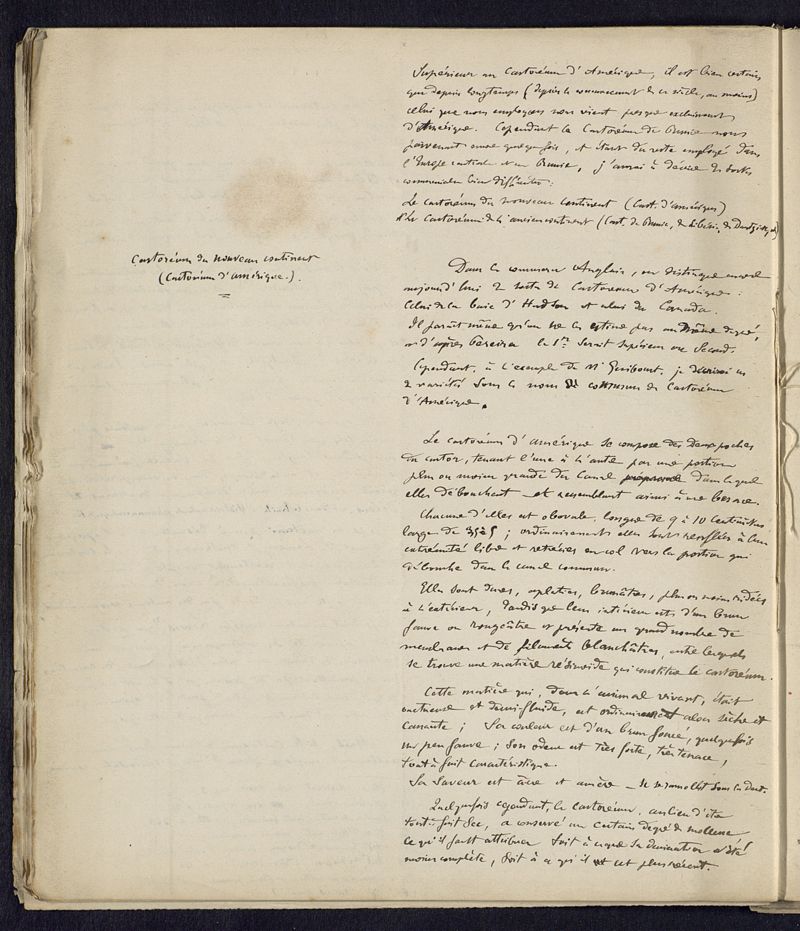 Supérieur au Castoréum d'Amérique, il est bien certain
que depuis longtemps (depuis le commencement de ce siècle, au moins)
celui que nous employons nous vient presque exclusivement
d'Amérique. Cependant le Castoréum de Russie nous
parvenant encore quelquefois, et étant du reste employé dans
l'Europe centrale et en Russie, j'aurai à décrire 2 sortes
commerciales bien distinctes :
Le castoréum du nouveau continent (Cast. d'amérique)
et le Castoréum de l'ancien continent (Cast. de Russie, de Sibérie, de Dantzig, &)
Castoréum du nouveau continent
(Castoréum d'amérique.).
Dans le commerce Anglais, on distingue encore
aujourd'hui 2 sortes de Castoréum d'Amérique :
Celui de la baie d'Hudson et celui du Canada.
Il paraît même qu'on ne les estime pas au même degré,
et d'après Pereira le 1er serait supérieur au Second.
Cependant, à l'exemple de Mr Guibourt, je décrirai ces
2 variétés sous le nom commun de Castoréum
d'Amérique.
Le castoréum d'amérique se compose des deux poches
du castor, tenant l'une à l'autre par une portion
plus ou moins grande du Canal dans lequel
elles débouchent et ressemblant ainsi à une besace.
Chacune d'elles est obovale, longue de 9 à 10 Centimètres
large de 3 à 5 ; ordinairement elles sont renflées à leur
extrémité libre et retrécies en col vers la portion qui
débouche dans le canal commun.
Elles sont dures, aplaties, brunâtres, plus ou moins ridées
à l'extérieur, tandis que leur intérieur est d'un brun
fauve ou rougeâtre et présente un grand nombre de
membranes et de filaments blanchâtres, entre lesquels
se trouve une matière résinoïde qui constitue le castoréum.
Cette matière qui, dans l'animal vivant, était
onctueuse et demi-fluide, est ordinairement alors sèche et
cassante ; Sa couleur est d'un brun foncé, quelquefois
un peu fauve ; son odeur est très forte, très tenace,
tout à fait caractéristique.
Sa Saveur est âcre et amère – Il se ramollit sous la dent.
Quelquefois cependant, le castoréum, au lieu d'être
tout à fait sec, a conservé un certain degré de mollesse
ce qu'il faut attribuer soit à ce que sa dessication a été
moins complète, soit à ce qu'il est plus récent.